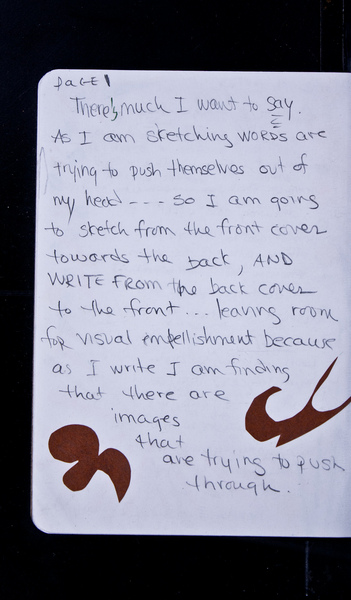 PAGE 1
There's much I want to say.
As I am sketching WORDS are
trying to push themselves out of
my head --- so I am going
to sketch from the front cover
towards the back, AND
WRITE FROM the back cover
to the front... leaving room
for visual embellishment because
as I write I am finding
that there are
images
that
are trying to push
through.